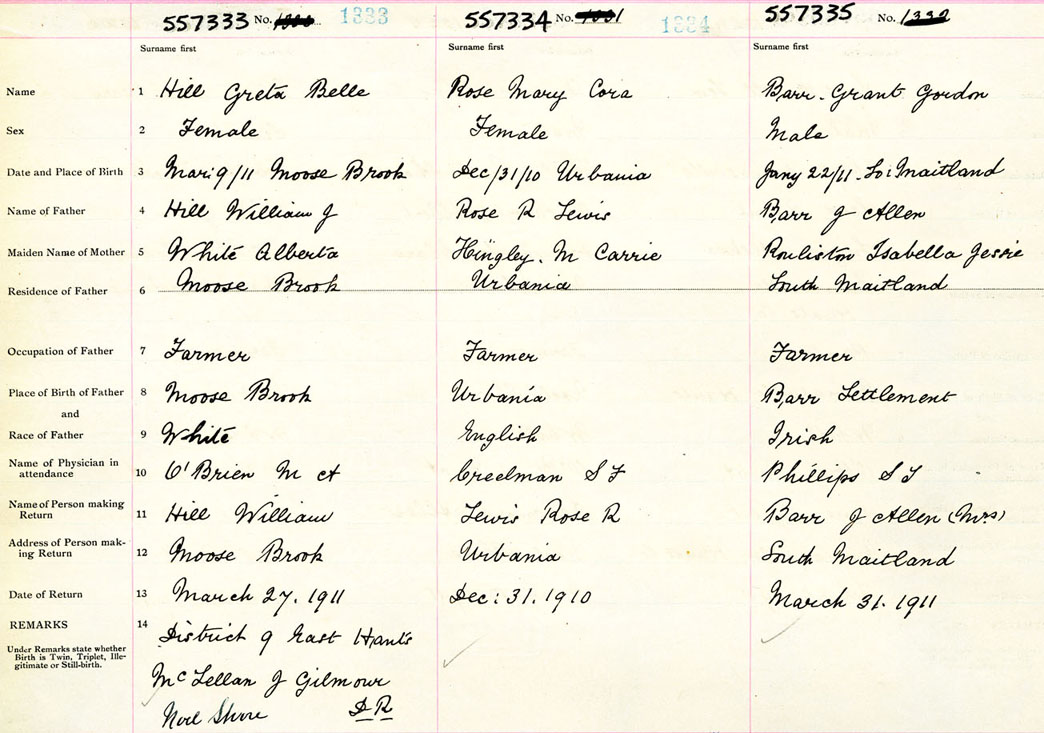 557333 No. 1333 557334 No. 1331 1334 557335 No. 1332
Surname first Surname first Surname first
Name 1 Hill Greta Belle Rose Mary Cora Barr. Grant Gordon
Sex 2 Female Female Male
Date and Place of Birth 3 Mar: 9/11 Moose Brook Dec/31/10 Urbania Jany 22/11. So: Maitland
Name of Father 4 Hill William J Rose R Lewis Barr J Allen
Maiden Name of Mother 5 White Alberta Hingley. M Carrie Rouliston Isabella Jessie
Residence of Father 6 Moose Brook Urbania South Maitland
Occupation of Father 7 Farmer Farmer Farmer
Place of Birth of Father 8 Moose Brook Urbania Barr Settlement
and
Race of Father 9 White English Irish
Name of Physician in
attendance 10 O'Brien M A Creelman S F Phillips S J
Name of Person making
Return 11 Hill William Lewis Rose R Barr J Allen (Mrs)
Address of Person mak-
ing Return 12 Moose Brook Urbania South Maitland
Date of Return 13 March 27. 1911 Dec: 31. 1910 March 31. 1911
REMARKS 14 District 9 East Hants
Under Remarks state whether
Birth is Twin, Triplet, Ille-
gitimate or Still-birth.
McLellan J Gilmour
Noel Shore D R